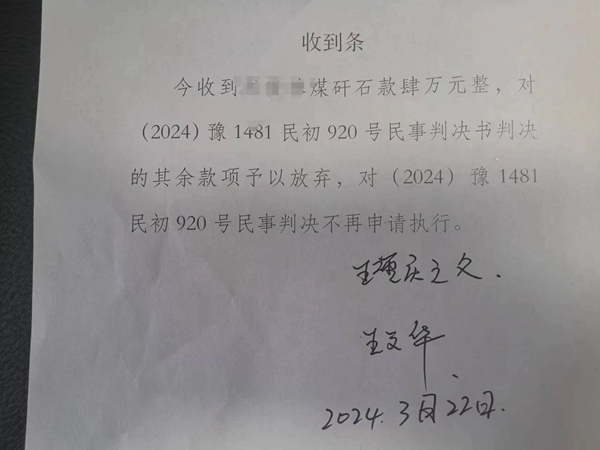 收到条
今收到煤矸石款肆万元整，对
（2024）豫 1481 民初 920 号民事判决书判决
的其余款项予以放弃，对（2024）豫 1481
民初 920 号民事判决不再申请执行。
之父.
王文华
2024.3月22日.